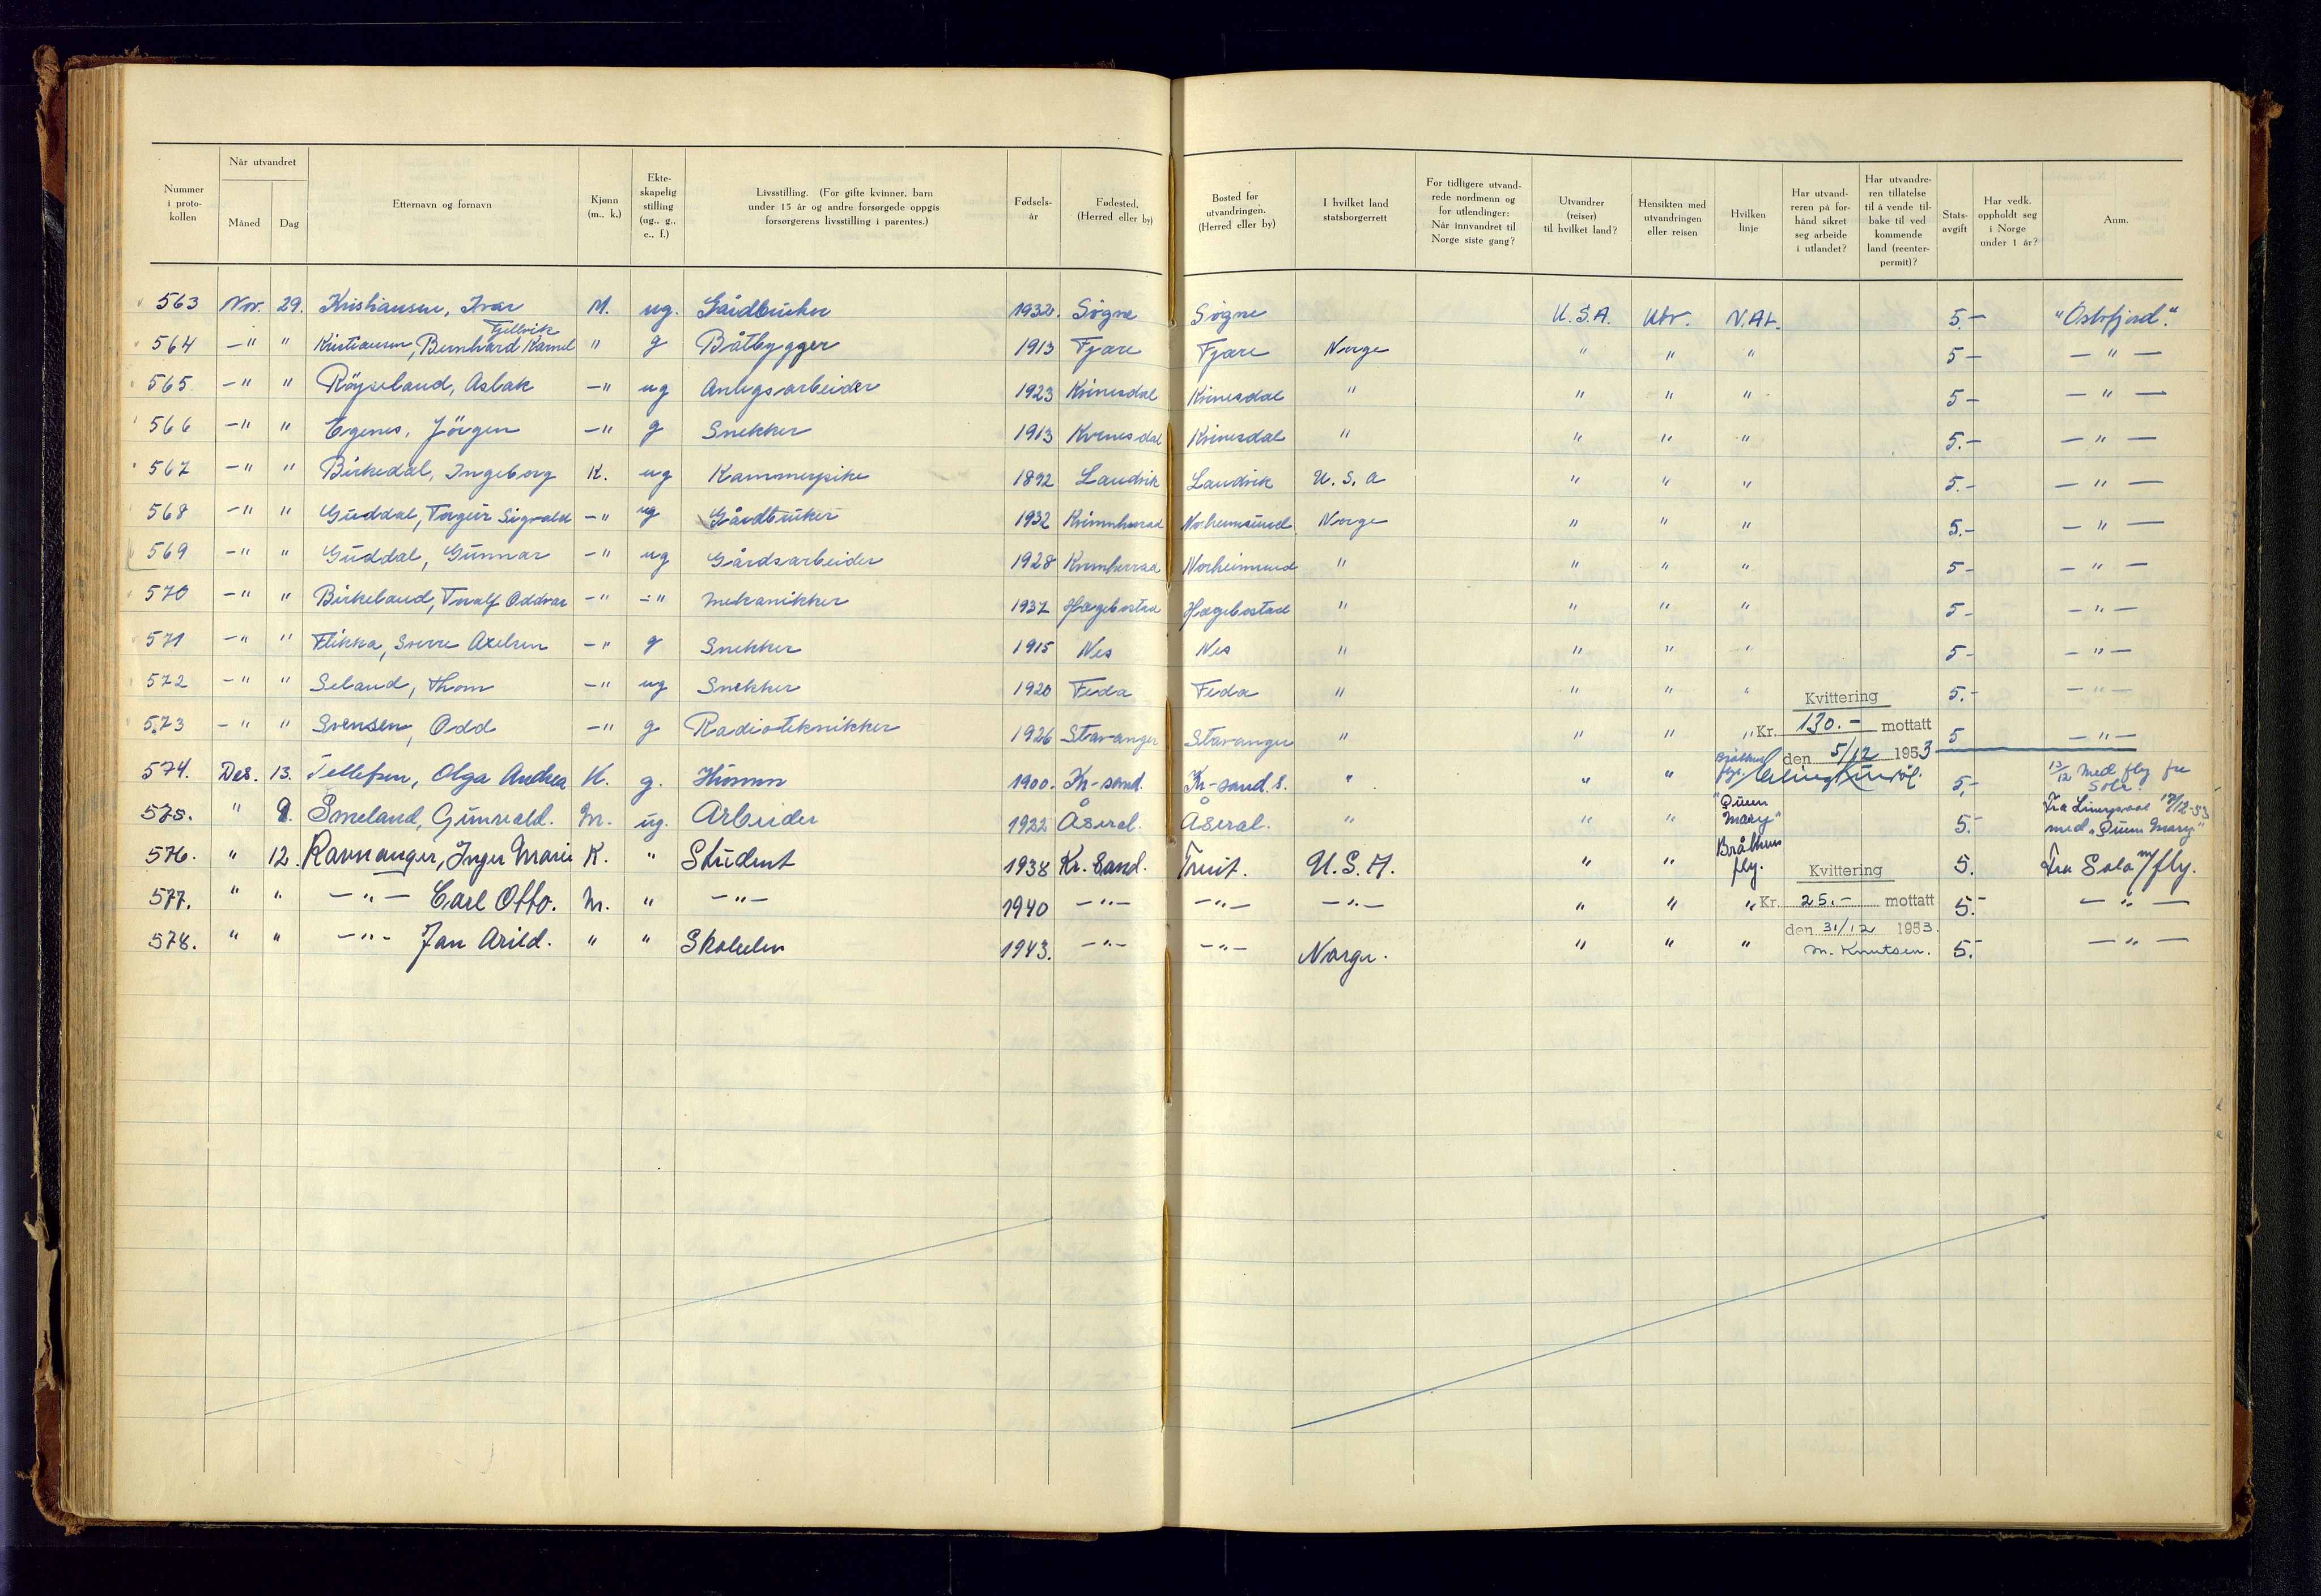 Nummer i proto- kollen | Når utvandret Måned Dag | Etternavn og fornavn | Kjønn (m., k.) | Ekte- skapelig stilling (ug., g., e., f.) | Livsstilling. (For gifte kvinner, barn under 15 år og andre forsørgede oppgis forsørgerens livsstilling i parentes.) | Fødsels- år | Fødested. (Herred eller by) | Bosted før utvandringen. (Herred eller by) | I hvilket land statsborgerrett | For tidligere utvand- rede nordmenn og for utlendinger: Når innvandret til Norge siste gang? | Utvandrer (reiser) til hvilket land? | Hensikten med utvandringen eller reisen | Hvilken linje | Har utvand- reren på for- hånd sikret seg arbeide i utlandet? | Har utvandre- ren tillatelse til å vende til- bake til ved kommende land (reenter- permit)? | Stats- avgift | Har vedk. oppholdt seg i Norge under 1 år? | Anm.
563 Nov. 29. Kristiansen, Ivar M. ug. Gårdbruker 1932. Søgne Søgne U.S.A. Utv. N.A.L. 5.- "Oslofjord".
564 -" " Kristiansen, Bernhard Kamel Gillvik " g Båtbygger 1913 Fjære Fjære Norge " " " 5- -"-
565. -" " Röyseland, Aslak -" ug Anlegsarbeider 1923 Kvinesdal Kvinesdal " " " " 5- -"-
566 -" " Egenes, Jörgen -" g Snekker 1913 Kvinesdal Kvinesdal " " " " 5.- -"-
567 -" " Birkedal, Ingeborg K. ug Kammerpike 1892 Landvik Landvik U.S.A " " " 5.- -"-
568 -" " Guddal, Torgeir Sigvald -" ug Gårdbruker 1932 Kvinnherad Norheimsund Norge " " " 5.- -"-
569 -" " Guddal, Gunnar -" ug Gårdsarbeider 1928 Kvinnherrad Norheimsund " " " " 5- -"-
570 -" " Birkeland, Toralf Oddvar -" -" Mekanikker 1937 Hægebostad Hægebostad " " " " 5- -"-
571 -" " Flikka, Sverre Axelsen -" g Snekker 1915 Nes Nes " " " " 5- -"-
572 -" " Seland, Thom -" ug Snekker 1920 Feda Feda " " " " 5.- -"-
Kvittering
573 -" " Svensen, Odd -" g Radioteknikker 1926 Stavanger Stavanger " " " " Kr. 130.- mottatt 5 -"-
den 5/12 1953
574. Des. 13. Tellefsen, Olga Andrea K. g. Husmor 1900. Kr-sand. Kr-sand.S. " " " Bråthens fly. 5,- 13/12 Med fly fra Sola.
575. " 9. Smeland, Gunvald. M. ug. Arbeider 1922 Åseral. Åseral. " " " "Queen Mary" 5.- Fra Liverpool 17/12-53 med "Queen Mary"
576. " 12. Ravnanger, Inger Marie K. " Student 1938 Kr. Sand. Tveit. U.S.A. " " Bråthens fly. 5. Fra Sola m/fly.
Kvittering
577. " " -"- Carl Otto. M. " -"- 1940 -"- -"- -"- " " " Kr. 25.- mottatt 5.- -"-
den 31/12 1953.
578. " " -"- Jan Arild. " " Skoleelev 1943. -"- -"- Norge. " " " M. Knutsen. 5.- -"-